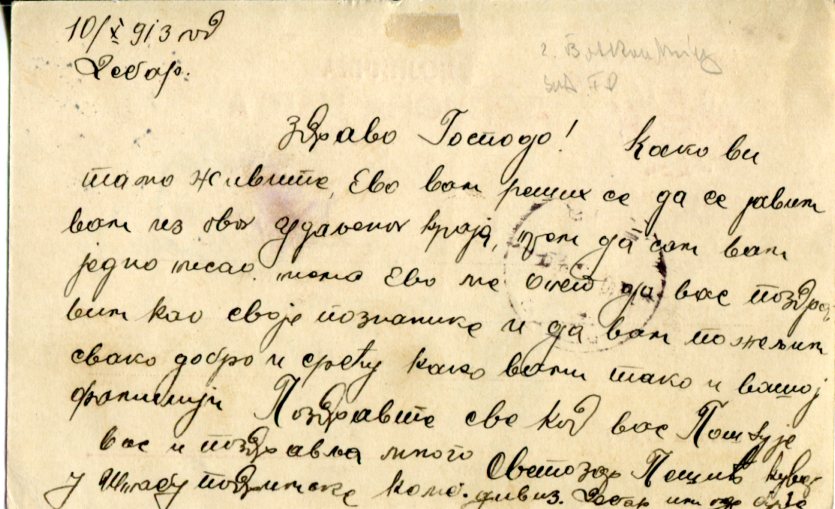 10/X 913 год
Дебар.
Здраво Господо! Како ви
тамо живите, Ево вам реших се да се јавим
вам из овог удаљеног краја, пре да сам вам
једно писао. Ево ме опет да вас поздра
вим као своје познанике и да вам пожелим
свако добро и срећу како вами тако и вашој
фамилији Поздравите све код вас Поштује
вас и поздравља много Светозар Пешић
у Штабу позиц. ком. дивиз. Дебар